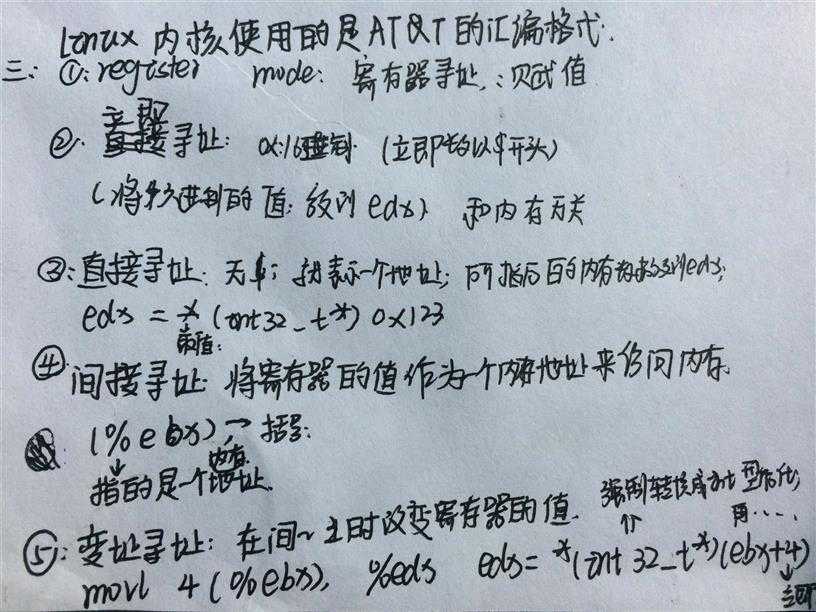 Linux 内核使用的是AT&T的汇编格式.
三: ①: register mode: 寄存器寻址,: 赋值
立即
②: 直接寻址: 0x:16进制 (立即数以$开头)
(将16进制的值: 给到edx) 和内存无关
③: 直接寻址: 无$; 就表示一个地址; 所指向的内存 edx;
edx = *(int32_t*) 0x123
取值:
④ 间接寻址: 将寄存器的值作为一个内存地址来访问内存.
(%ebx) → 括号:
内存
指的是一个地址.
强制转换成 型后; 再....
⑤: 变址寻址: 在间~之时改变寄存器的值.
movl 4(%ebx), %edx edx= *(int32_t*)(ebx+4)
立即